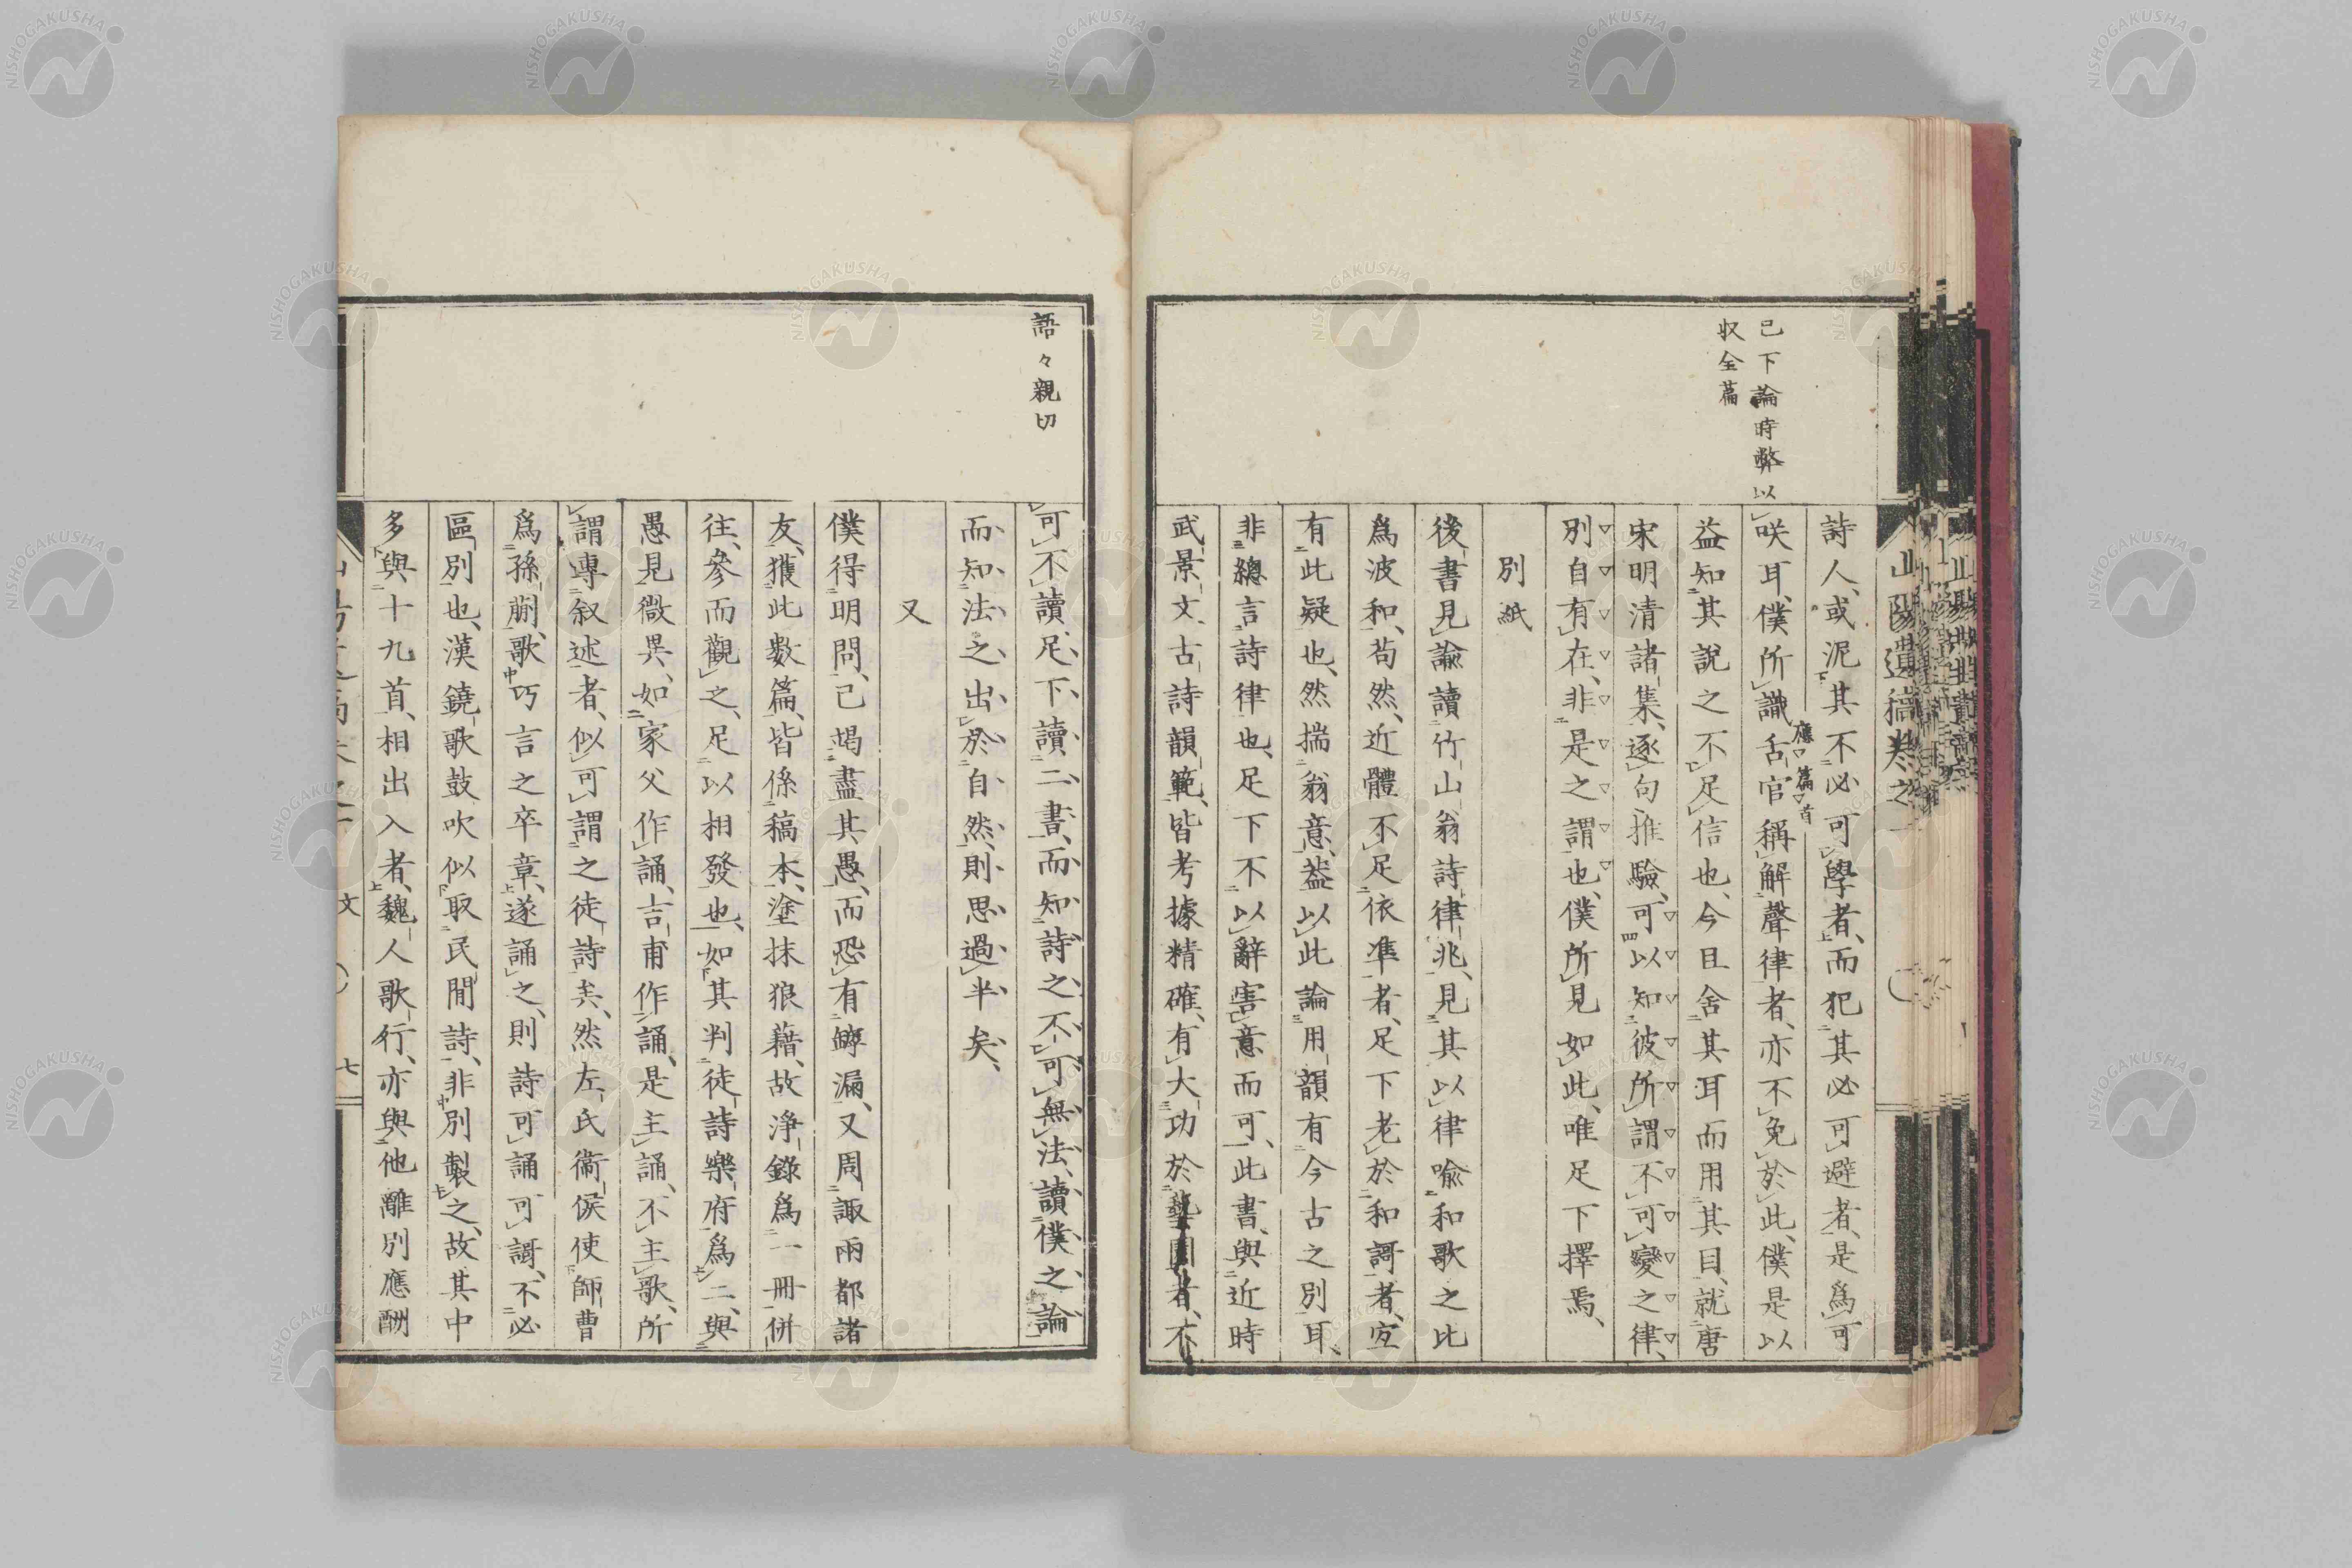 山陽遺稿卷之一
已下論時弊以
収全篇
詩人、或泥其不必可學者、而犯其必可避者、是爲可
應篇首
咲耳、僕所識舌官稱解聲律者、亦不免於此、僕是以
益知其說之不足信也、今且舍其耳而用其目、就唐
宋明清諸集、逐句推驗、可以知彼所謂不可變之律、
別自有在、非是之謂也、僕所見如此、唯足下擇焉、
別紙
後書見諭讀竹山翁詩律兆、見其以律喩和歌之比
爲波和、苟然、近體不足依準者、足下老於和謌者、宜
有此疑也、然揣翁意、葢以此論用韻有今古之別耳、
非總言詩律也、足下不以辭害意而可、此書、與近時
武景文古詩韻範、皆考據精確、有大功於藝圃者、不
語々親切
可不讀、足下讀二書、而知詩之不可無法、讀僕之論
而知法之出於自然、則思過半矣、
又
僕得明問、已竭盡其愚、而恐有罅漏、又周諏兩都諸
友、獲此數篇、皆係稿本、塗抹狼藉、故淨錄爲一冊併
往、參而觀之、足以相發也、如其判徒詩樂府爲二、與
愚見微異、如家父作誦、吉甫作誦、是主誦、不主歌、所
謂專叙述者、似可謂之徒詩矣、然左氏衞侯使師曹
爲孫蒯歌巧言之卒章、遂誦之、則詩可誦可謌、不必
區別也、漢鐃歌鼓吹似取民間詩、非別製之、故其中
多與十九首、相出入者、魏人歌行、亦與他離別應酬
文
七